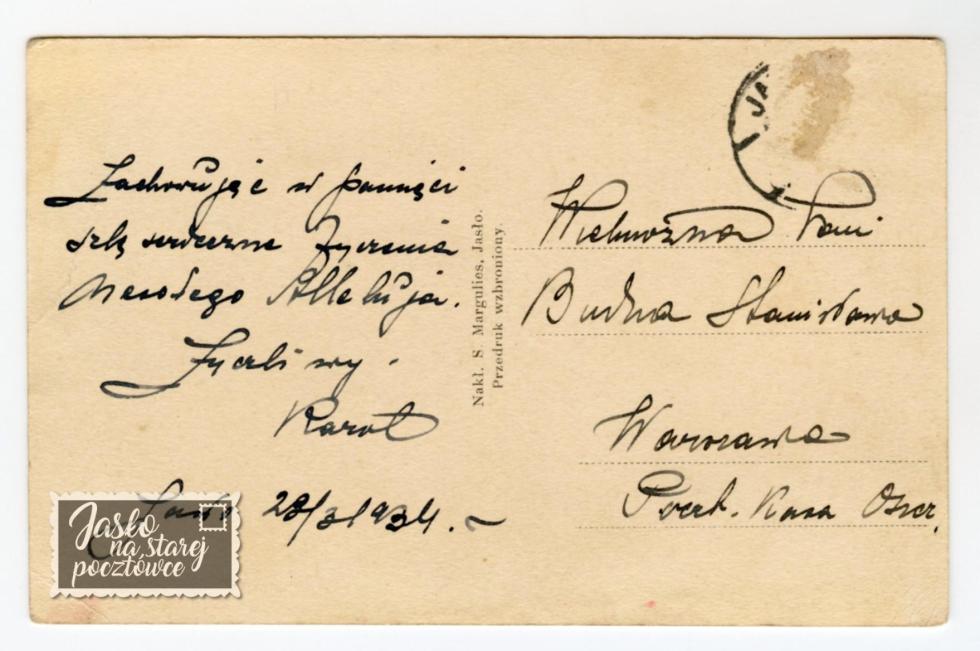 Zachowując w pamięci
ślę serdeczne życzenia
Wesołego Alleluja.
Życzliwy.
Karol
Jasło 28/3 1934.
Jasło
na starej
pocztówce
Nakł. S. Margulies, Jasło.
Przedruk wzbroniony.
JA
Wielmożna Pani
Budna Stanisława
Warszawa
Poczt. Kasa Oszcz.